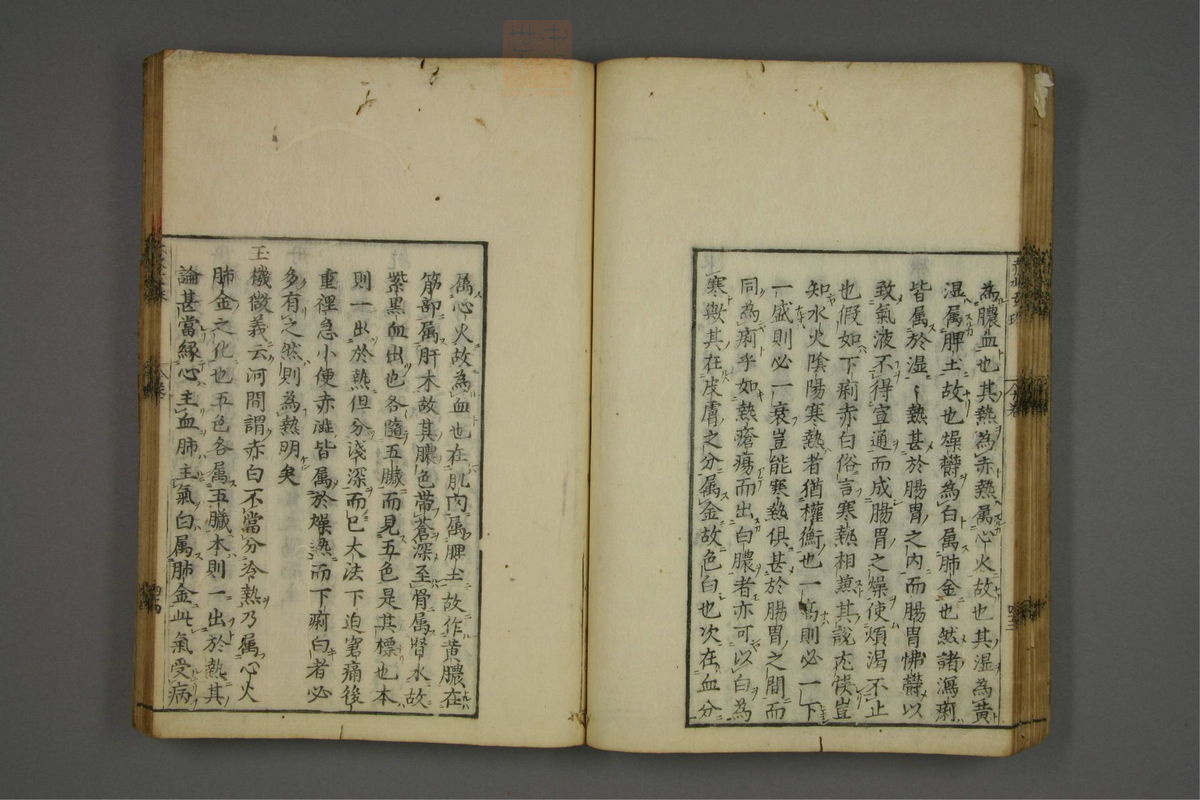 為膿血也其熱為赤熱属心火故也其湿為黄
湿属脾土故也燥欝為白属肺金也然諸瀉痢
皆属於湿〻熱甚於腸胃之内而腸胃怫欝以
致氣液不得宣通而成腸胃之燥使煩渇不止
也假如下痢赤白俗言寒熱相兼其説尤誤豈
知水火陰陽寒熱者猶權衡也一高則必一下
一盛則必一衰豈能寒熱俱甚於腸胃之間而
同為痢乎如熱瘡瘍而出白膿者亦可以白為
寒歟其在皮膚之分属金故色白也次在血分
属心火故為血也在肌肉属脾土故作黄膿在
筋部属肝木故其膿色帯蒼深至骨属腎水故
紫黒血出也各隨五臓而見五色是其標也本
則一出於熱但分淺深而已大法下迫窘痛後
重裡急小便赤澁皆属於燥熱而下痢白者必
多有之然則為熱明矣
玉機微義云河間謂赤白不當分冷熱乃属心火
肺金之化也五色各属五臓本則一出於熱其
論甚當縁心主血肺主氣白属肺金此氣受病